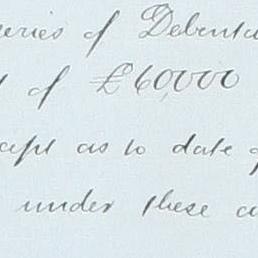 series of Debentu
of £60,000
except as to date of
under these co